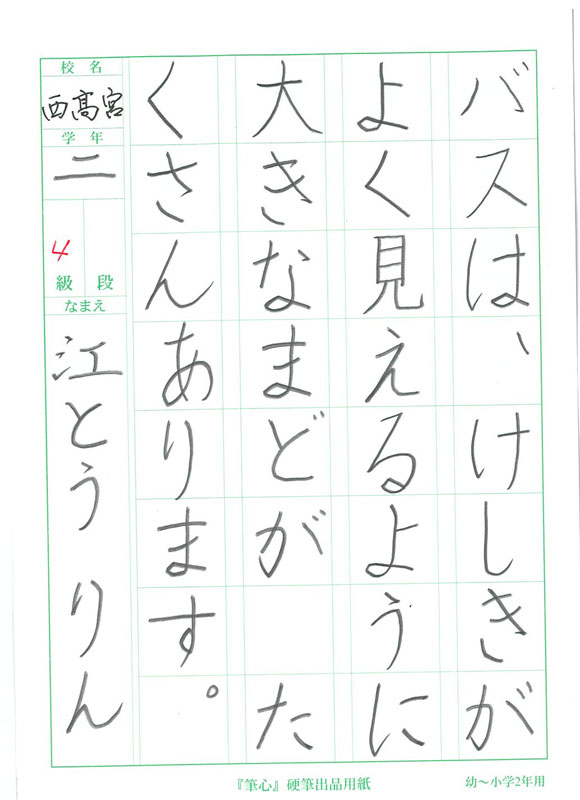 バスは、けしきが
よく見えるように
大きなまどが　た
くさんあります。
校名
西高宮
学年
二
4
級 段
なまえ
江とう りん
『筆心』硬筆出品用紙
幼〜小学2年用